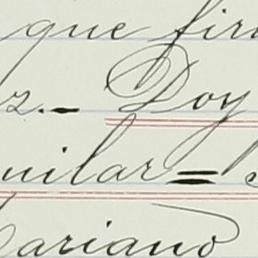 que fir
z.— Doy
uilar =
ariano